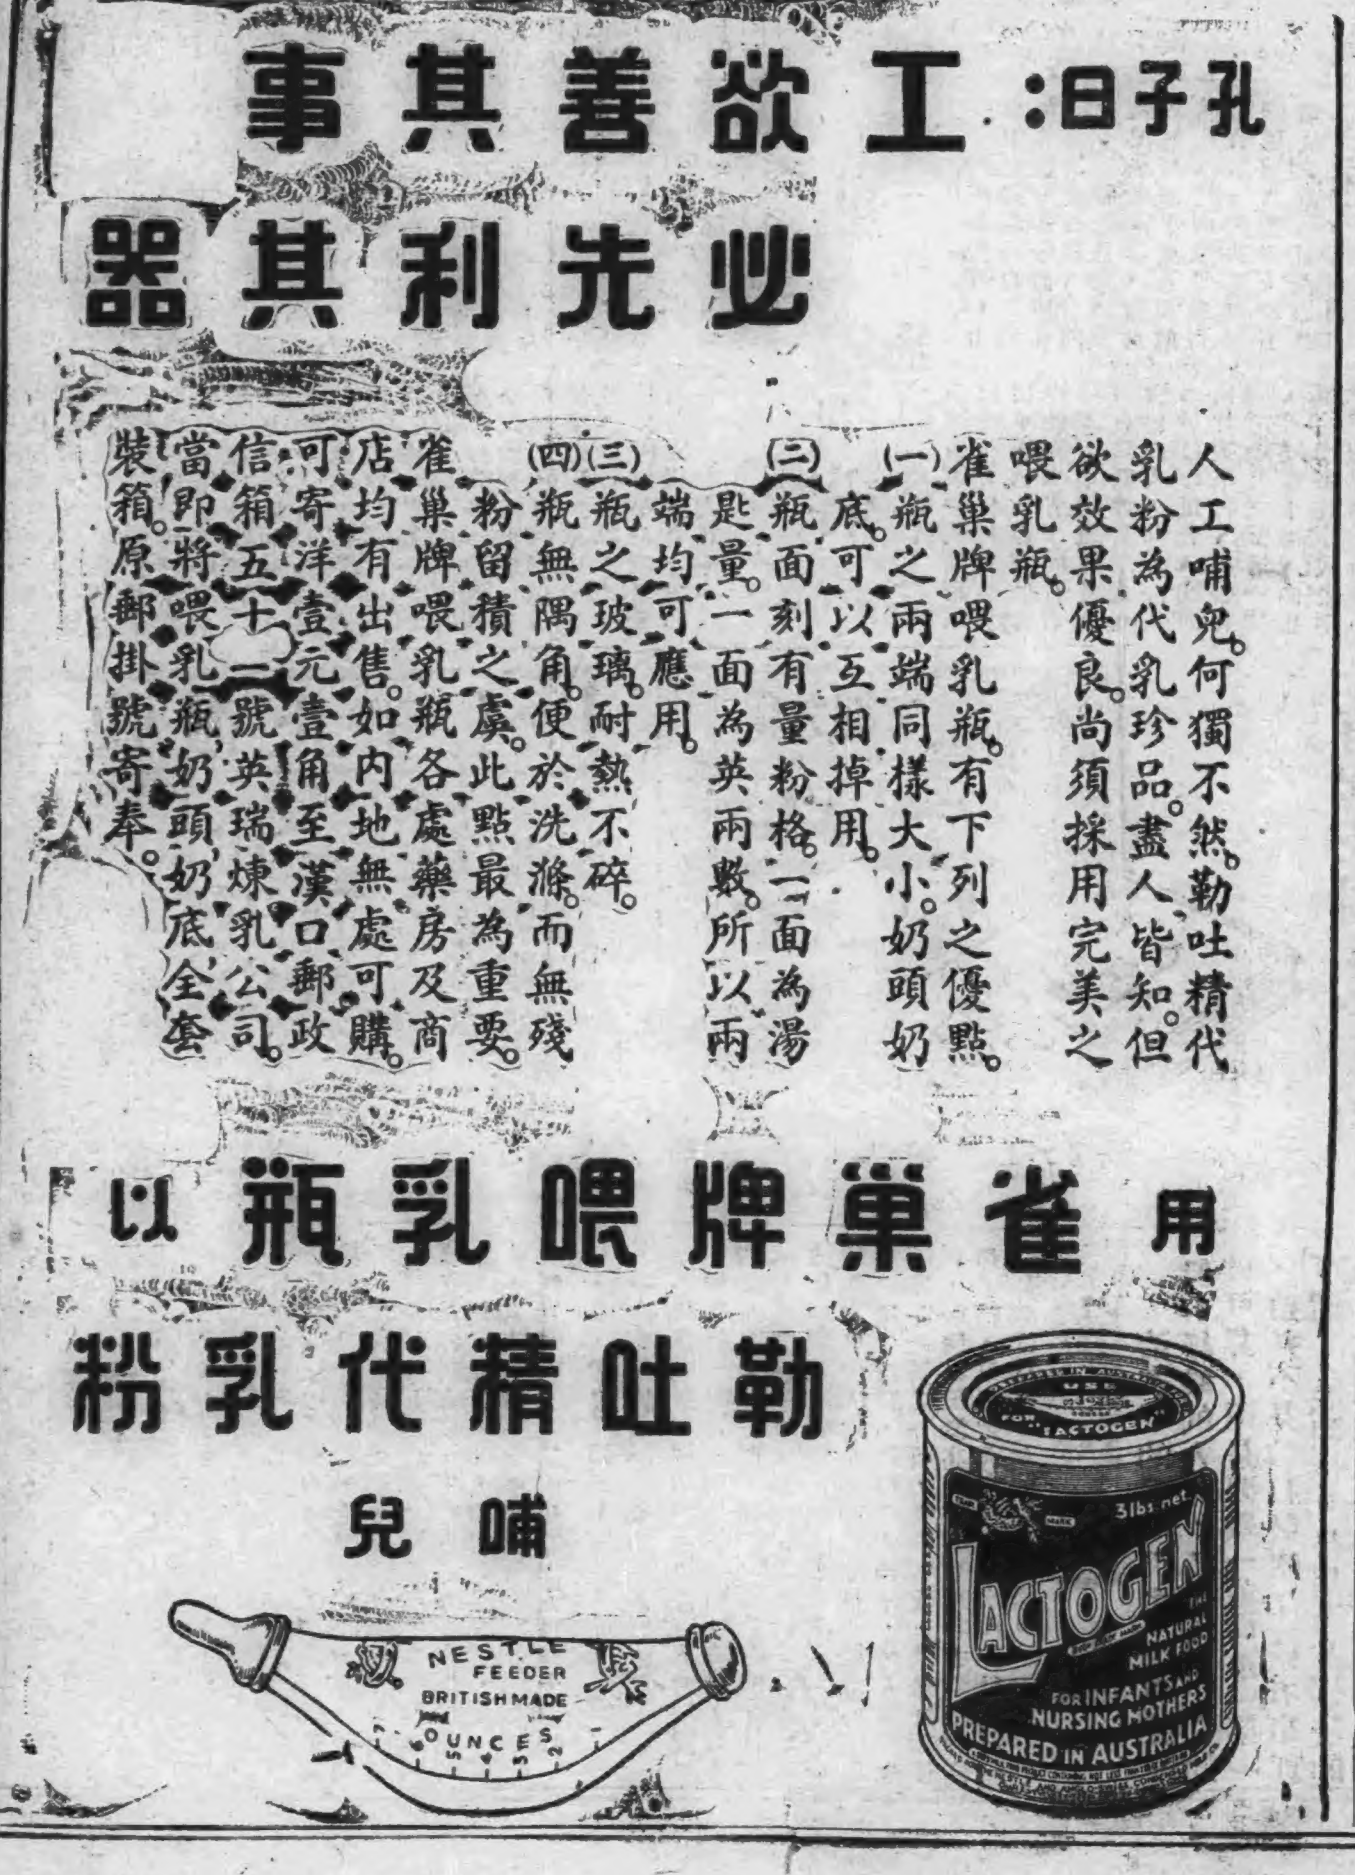 孔子曰：工欲善其事
必先利其器
人工哺兒。何獨不然。勒吐精代
乳粉為代乳珍品。盡人皆知。但
欲效果優良。尚須採用完美之
喂乳瓶。
雀巢牌喂乳瓶。有下列之優點。
(一)瓶之兩端同樣大小。奶頭奶
底。可以互相掉用。
(二)瓶面刻有量粉格。一面為湯
匙量。一面為英兩數。所以兩
端均可應用。
(三)瓶之玻璃。耐熱不碎。
(四)瓶無隅角。便於洗滌。而無殘
粉留積之虞。此點最為重要。
雀巢牌喂乳瓶各處藥房及商
店均有出售。如內地無處可購。
可寄洋壹元壹角至漢口郵政
信箱五十一號英瑞煉乳公司。
當即將喂乳瓶奶頭奶底全套
裝箱。原郵掛號寄奉。
用雀巢牌喂乳瓶以
勒吐精代乳粉
哺兒
NESTLE
FEEDER
BRITISH MADE
OUNCES
5 4 3 2 1
PREPARED IN AUSTRALIA
USE
FOR
"LACTOGEN"
TRADE MARK
3lbs. net.
LACTOGEN
THE
NATURAL
MILK FOOD
FOR INFANTS AND
NURSING MOTHERS
PREPARED IN AUSTRALIA